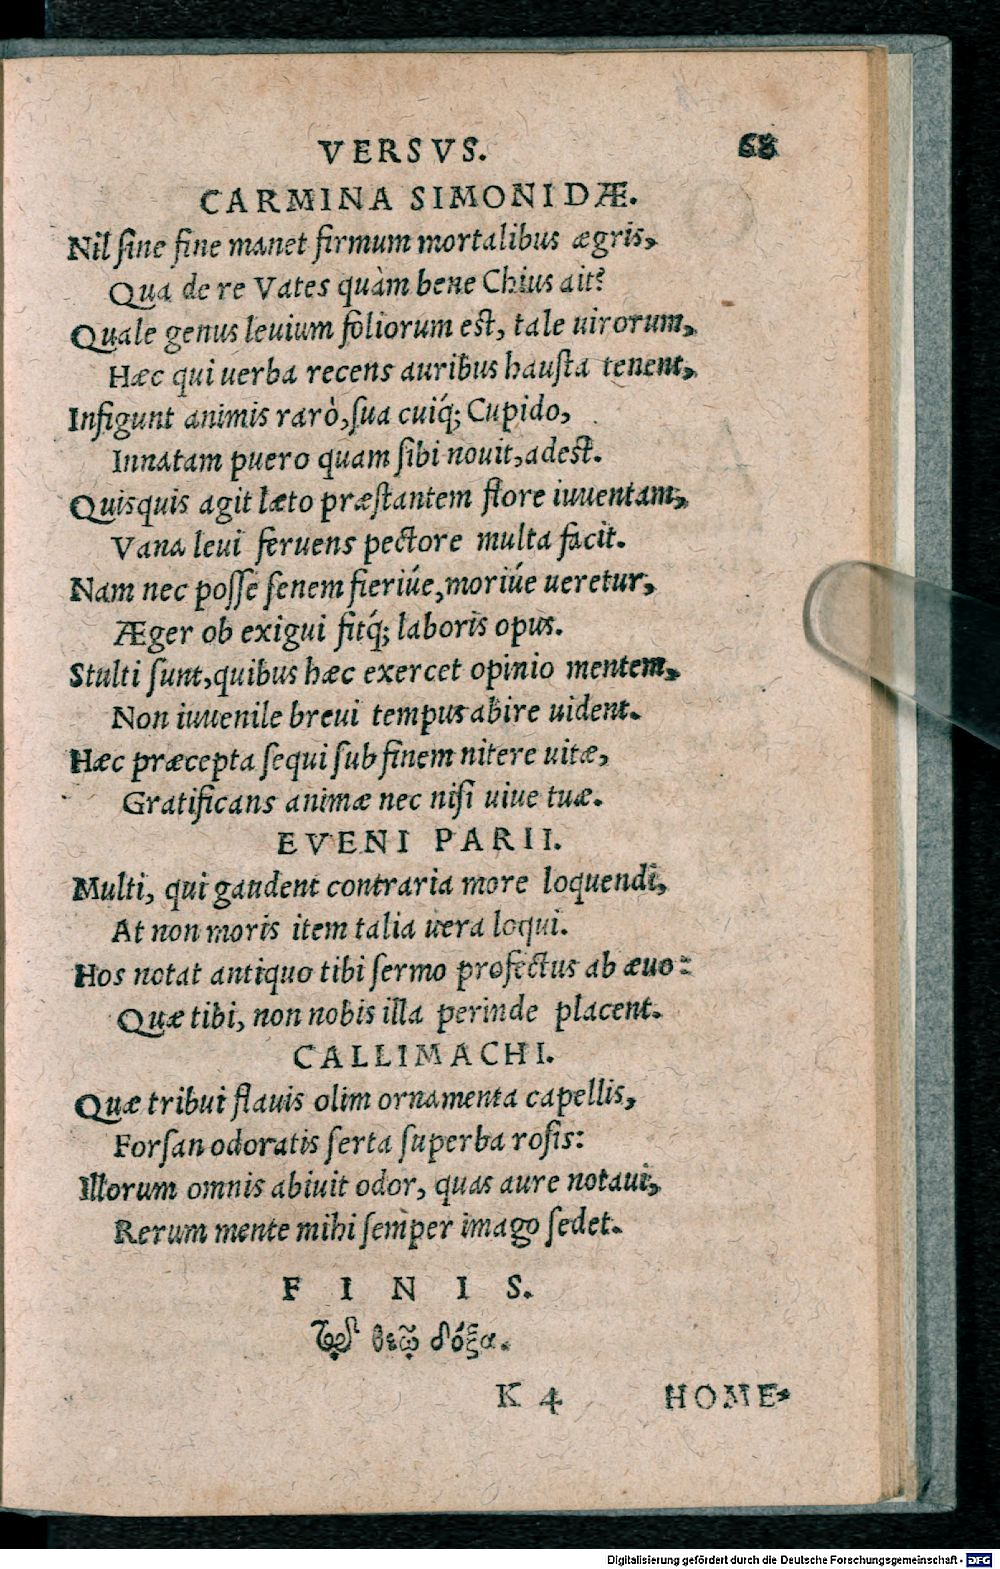 VERSVS. 68
CARMINA SIMONIDÆ.
Nil ſine fine manet firmum mortalibus ægris,
Qua de re Vates quàm bene Chius ait?
Quale genus leuium foliorum est, tale uirorum,
Hæc qui uerba recens auribus hauſta tenent,
Infigunt animis rarò, ſua cuiq́; Cupido,
Innatam puero quam ſibi nouit, adest.
Quisquis agit læto præſtantem flore iuuentam,
Vana leui feruens pectore multa facit.
Nam nec poſſe ſenem fieriúe, moriúe ueretur,
Æger ob exigui fitq́; laboris opus.
Stulti ſunt, quibus hæc exercet opinio mentem,
Non iuuenile breui tempus abire uident.
Hæc præcepta ſequi ſub finem nitere uitæ,
Gratificans animæ nec niſi uiue tuæ.
EVENI PARII.
Multi, qui gaudent contraria more loquendi,
At non moris item talia uera loqui.
Hos notat antiquo tibi ſermo profectus ab æuo:
Quæ tibi, non nobis illa perinde placent.
CALLIMACHI.
Quæ tribui flauis olim ornamenta capellis,
Forſan odoratis ſerta ſuperba roſis:
Illorum omnis abiuit odor, quas aure notaui,
Rerum mente mihi ſemper imago ſedet.
FINIS.
τῷ θεῷ δόξα.
K 4 HOME-
Digitalisierung gefördert durch die Deutsche Forschungsgemeinschaft - DFG